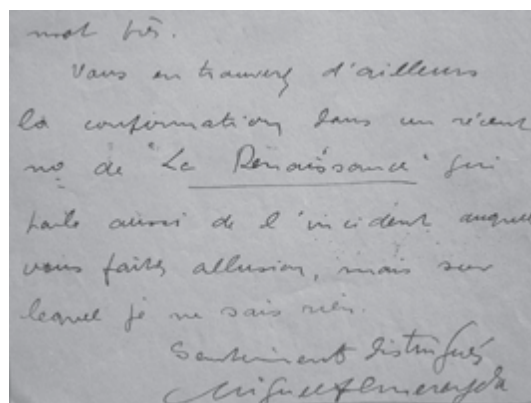 mot près.
Vous en trouverez d'ailleurs
la confirmation dans un récent
no de "La Renaissance" qui
parle aussi de l'incident auquel
vous faites allusion, mais sur
lequel je ne sais rien.
Sentiments distingués
Miguel Almereyda